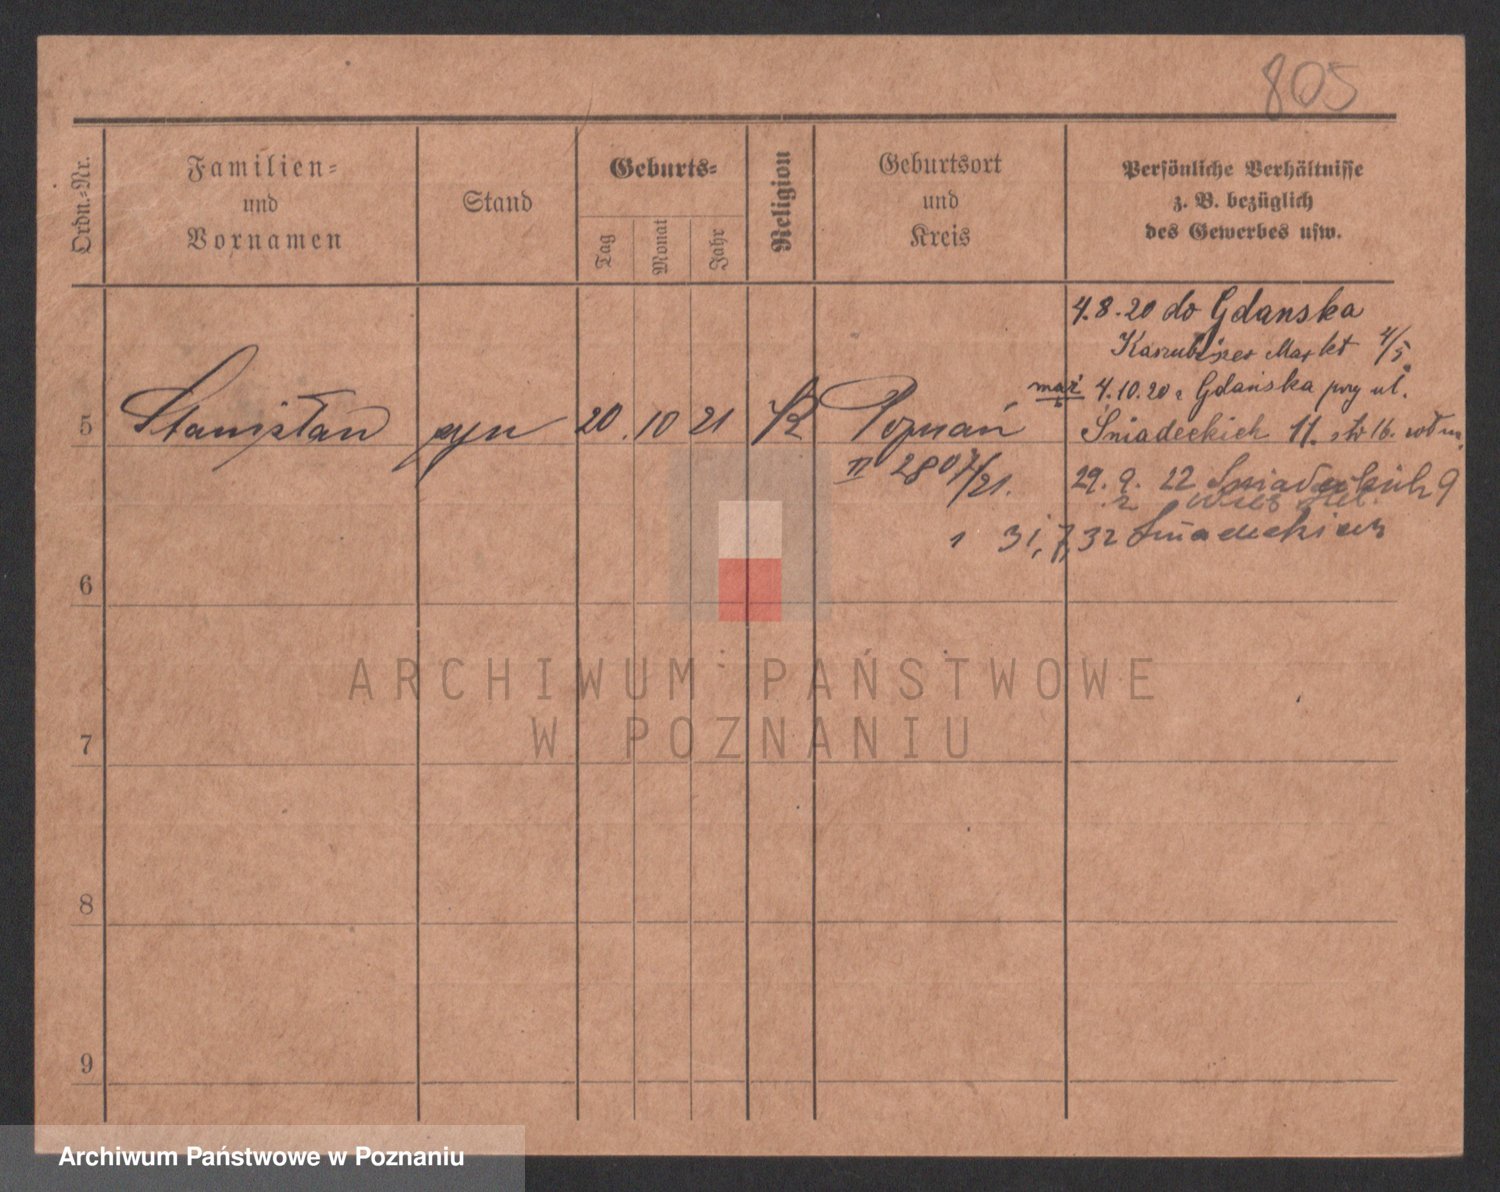 805
Ordn.-Nr.
Familien-
und
Vornamen
Stand
Geburts-
Tag
Monat
Jahr
Religion
Geburtsort
und
Kreis
Persönliche Verhältnisse
z. B. bezüglich
des Gewerbes usw.
4.8.20 do Gdanska
Markt 4/5
mąż 4.10.20 z Gdańska przy ul.
5 Stanisław syn 20. 10 21 K Poznań Śniadeckich 11.
II 2807/21. 29. 9. 22 Śniadeckich 9
31,7,32 Śniadeckich
6
7
8
9
ARCHIWUM PAŃSTWOWE
W POZNANIU
Archiwum Państwowe w Poznaniu